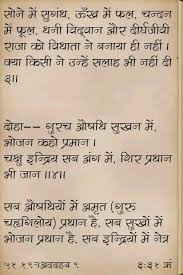 सोने में सुगंध, ऊँख में फल, चन्दन
में फूल, धनी विद्वान और दीर्घजीवी
राजा को विधाता ने बनाया ही नहीं ।
क्या किसी ने उन्हें सलाह भी नहीं दी
३॥
दोहा-- गुरच औषधि सुखन में,
भोजन कहो प्रमान ।
चक्षु इन्द्रिय सब अंग में, शिर प्रधान
भी जान ॥४॥
सब औषधियों में अमृत (गुरु
प्रधान है, सब सुखों में
भोजन प्रधान है, सब इन्द्रियों में नेत्र